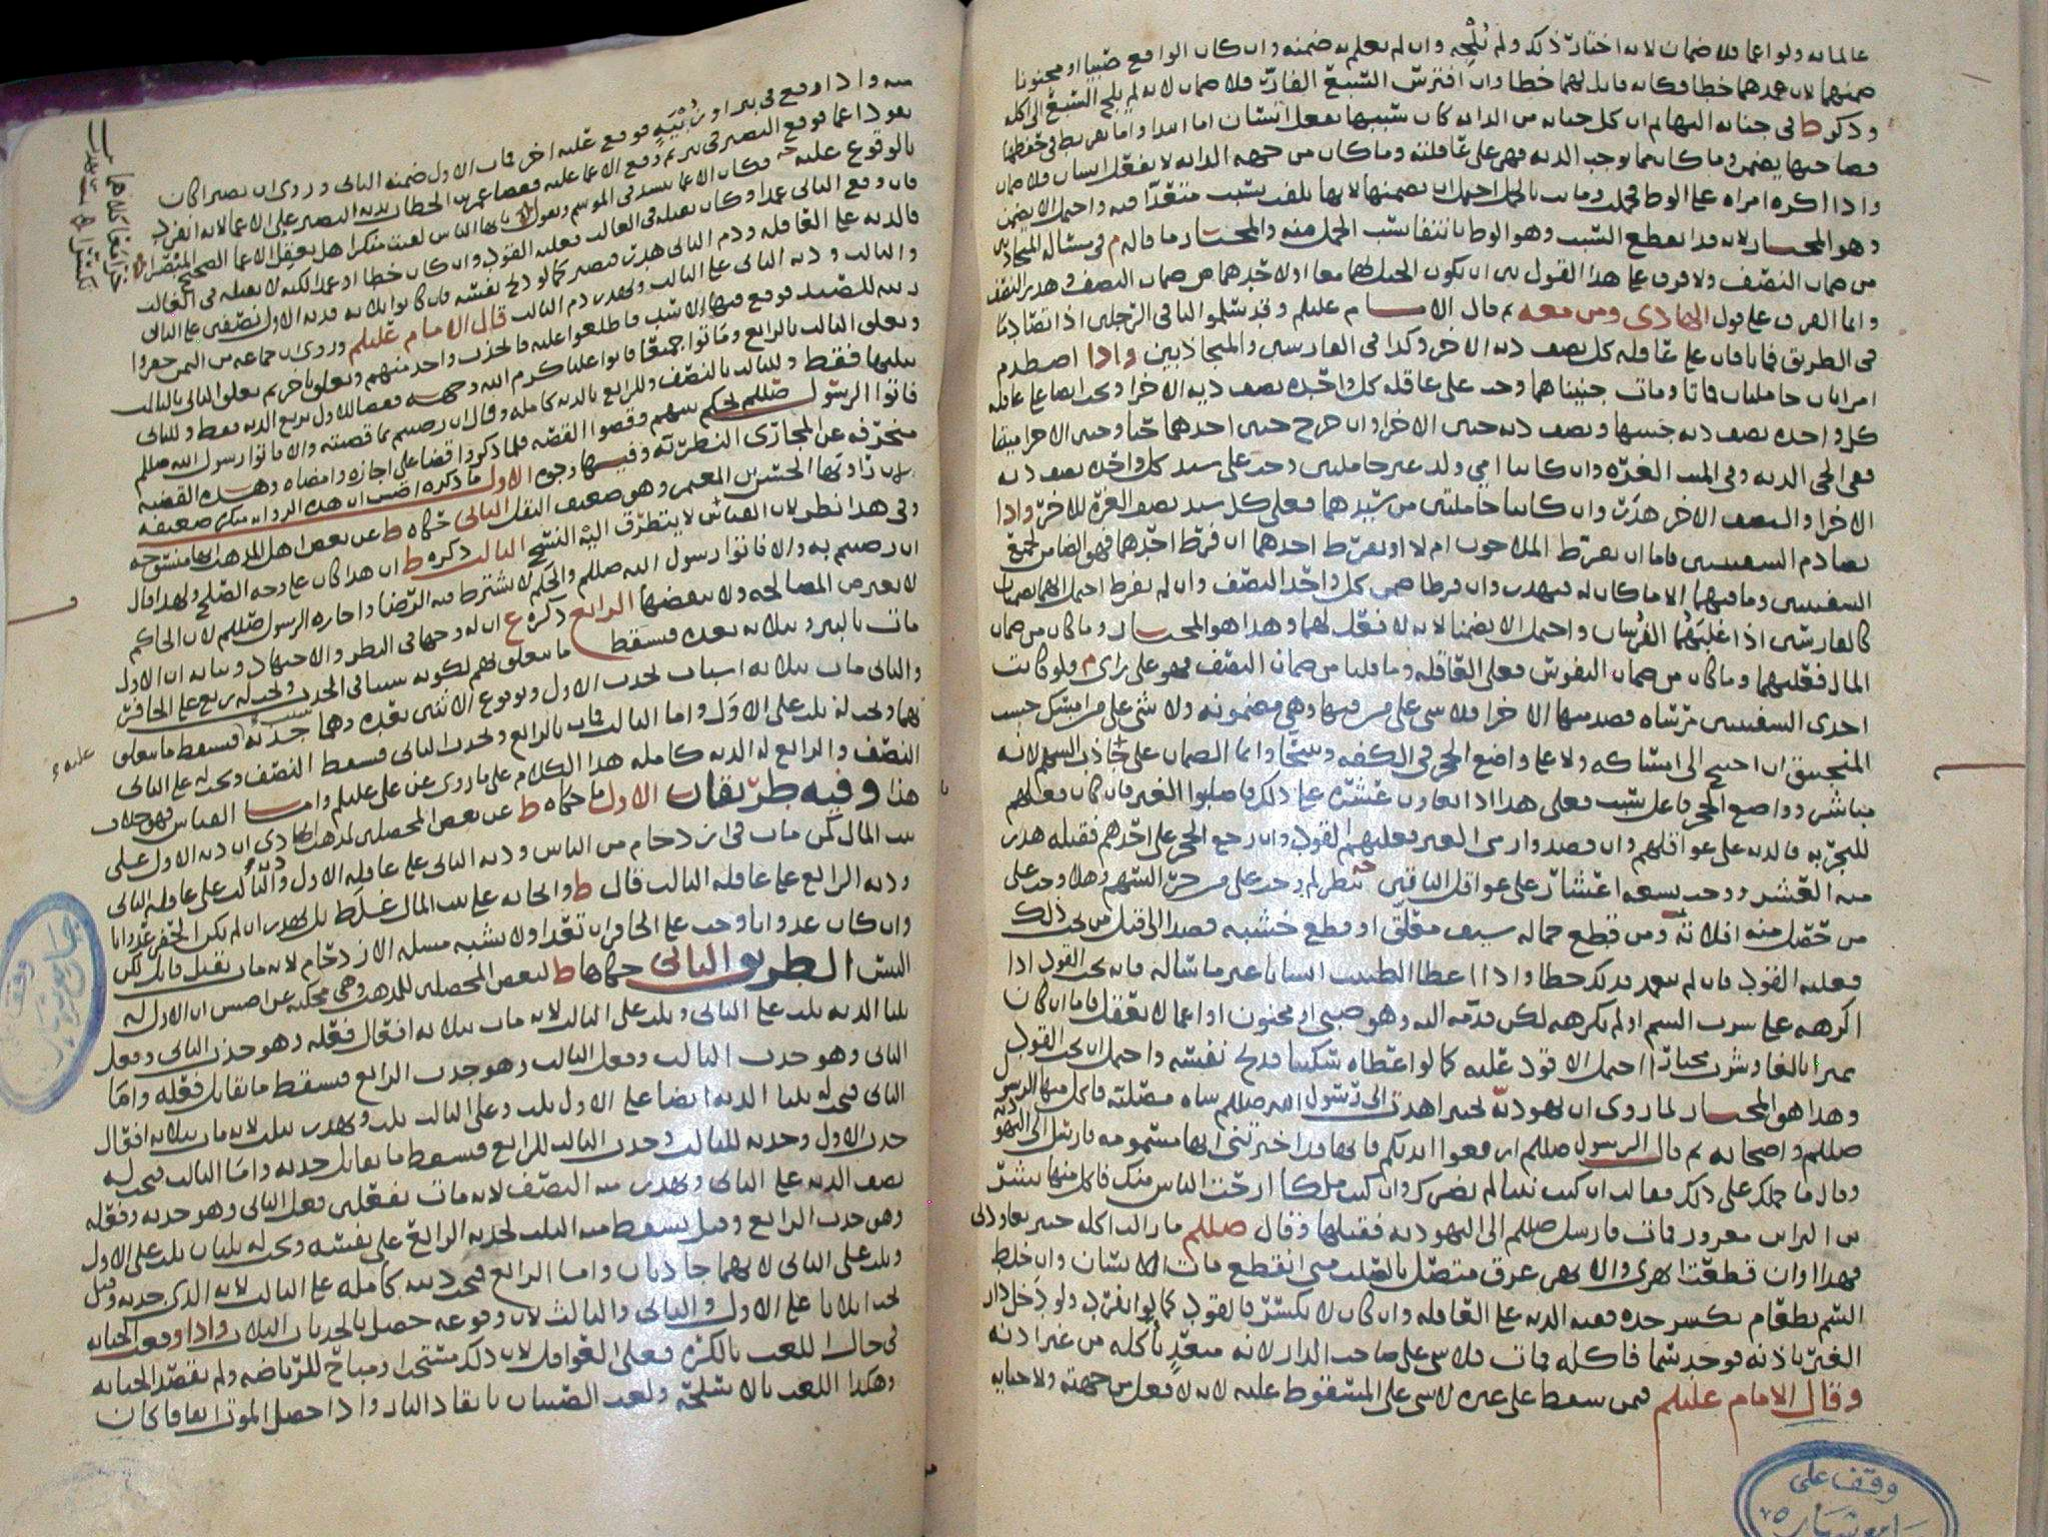 عالما به ولو اعما فلا ضمان لانه اختار ذلك ولم يُلجِه وان لم يعلم به ضمنه وان كان الواقع صبيا او مجنونا
ضمنهما لان عمدهما خطا فكانه قابل لهما خطا وان افترش السبع الفار فلا ضمان لانه لم يلج السبع الى اكله
وذكر ط في جنايه البهايم ان كل جنايه من الدابه كان سببها بفعل انسان اما ابتدا واما تفريط في حفظها
فصاحبها يضمن وما كان مما يوجب الديه فهي على عاقلته وما كان من جهه الدابه لا بفعل انسان فلا ضمان
واذا اكره امراه على الوطء فحملت وماتت بالحمل احتمل ان يضمنها لانها تلفت بسبب متعدا فيه واحتمل الا يضمن
وهو المختار لانه قد انقطع السبب وهو الوطء بانتفا نسب الحمل منه والمختار ما قاله م في مساله المتجاذبين
من ضمان النصف ولا فرق على هذا القول بين ان يكون الحبل لهما معا او لاحدهما من ضمان النصف وهدر النصف
وانما الفرق على قول الهادي ومن معه ثم قال الامام عليلم وقد سلموا لنا في الرجلين اذا تصادما
في الطريق فماتا فان على عاقله كل نصف ديه الاخر وكذا في الفارسين والمتجاذبين واذا اصطدم
امراتان حاملتان فماتا ومات جنيناهما وجب على عاقله كل واحده نصف ديه الاخرى وتجب ايضا على عاقله
كل واحده نصف ديه جنينها ونصف ديه جنين الاخرى وان خرج جنين احدهما حيا وجنين الاخرى ميتا
ففي الحي الديه وفي الميت الغره وان كانتا امي ولد غير حاملتين وجب على سيد كل واحده نصف ديه
الاخرى والنصف الاخر هدر وان كانتا حاملتين من سيديهما فعلى كل سيد نصف الغرة للاخر واذا
تصادم السفينتين فاما ان يفرط الملاحون ام لا او يفرط احدهما ان فرط احدهما فهو الضامن لجميع
السفينتين وما فيهما الا ما كان له فيهدر وان فرطا ضمن كل واحد النصف وان لم يفرط احتمل انهما يضمنان
كالفارسين اذا غلبتهما الفرسان واحتمل الا يضمنا لانه لا فعل لهما وهذا هو المختار وما كان من ضمان
المال فعليهما وما كان من ضمان النفوس فعلى العاقله وما قلنا من ضمان النصف فهو على راي م ولو كانت
احدى السفينتين مرساه فصدمتها الاخرى فلا شي على من فيها وهي مضمونه ولا شي على من امسك خشب
المنجنيق ان احتيج الى امساكه ولا على واضع الحجر في الكفه وانما الضمان على جاذب السهم لانه
مباشر وواضع الحجر فاعل سبب فعلى هذا اذا تعاون عشره على ذلك فاصابوا الغير فان كان فعلهم
للتجربه فالديه على عواقلهم وان قصدوا رمي الغير فعليهم القود وان رجع الحجر على احدهم فقتله هدر
منه العشر ووجب تسعه اعشار على عواقل الباقين
فعليه القود فان لم يتعمد فديه خطا واذا اعطا الطبيب انسانا غير ما ساله فانه يجب القود اذا
اكرهه على شرب السم او لم يكرهه لكن قدمه اليه وهو صبي او مجنون او اعما لا يعقل فاما ان كان
مميزا بالغا وشرب مختارا احتمل الا قود عليه كما لو اعطاه سكينا فذبح نفسه واحتمل ان يجب القود
وهذا هو المختار لما روي ان يهوديه بخيبر اهدت الى رسول الله صللم شاه مصليه فاكل منها الرسول
صللم واصحابه ثم قال الرسول صللم ارفعوا ايديكم فانها قد اخبرتني انها مسمومه فارسل الى اليهوديه
وقال ما حملك على ذلك فقالت ان كنت نبيا لم يضرك وان كنت ملكا ارحت الناس منك فاكل منها بشر
بن البراء بن معرور فمات فارسل صللم الى اليهوديه فقتلها وقال صللم ما زالت اكله خيبر تعاودني
فهذا اوان قطعت ابهري والابهر عرق متصل بالقلب متى انقطع مات الانسان وان خلط
السم بطعام يكسر حده ففيه الديه على العاقله وان كان لا يكسر فالقود كما لو انفرد ولو دخل دار
الغير باذنه فوجد سما فاكله فمات فلا شي على صاحب الدار لانه متعد باكله من غير اذنه
وقال الامام عليلم فمن سقط على غيره لا شي على المسقوط عليه لانه لا فعل من جهته ولا جنايه
وقف على
منه واذا وقع في بير او زُبْيَةٍ فوقع عليه اخر فمات الاول ضمنه الثاني وروي ان بصيرا كان
يقود اعما فوقع البصير في بير ثم وقع الاعما عليه فقضا عمر بن الخطاب بديه البصير على الاعما لانه انفرد
بالوقوع عليه فكان الاعما ينشد في الموسم ويقول يا ايها الناس لقيت منكرا هل يعقل الاعما الصحيح المبصرا
فان وقع الثاني عمدا وكان يقتله في الغالب فعليه القود وان كان خطا او عمدا لكنه لا يقتله في الغالب
فالديه على العاقله ودم الثاني هدر
والثالث وديه الثاني على الثالث ويهدر دم الثالث قال الامام عليلم وروي ان جماعه من اليمن حفروا
زبيه للصيد فوقع فيها الاسد فاطلعوا عليه فانحدر واحد منهم وتعلق باخر ثم تعلق الثاني بالثالث
وتعلق الثالث بالرابع وماتوا جميعا فاتوا عليا كرم الله وجهه فقضا للاول بربع الديه فقط وللثاني
بثلثها فقط وللثالث بالنصف وللرابع بالديه كامله وقال ان رضيتم بما قضيته والا فاتوا رسول الله صللم
فاتوا الرسول صللم ليحكم بينهم وقصوا القصه فلما ذكروا قضا علي اجازه وامضاه وهذه القضيه
منحرفه عن المجاري النظريه وفيها وجوه الاول ما ذكره اصش ان هذه الروايه منكره ضعيفه
لان راويها الحنش بن المعتمر وهو ضعيف النقل الثاني حكاه ط عن بعض اهل المذهب انها منسوخه
وفي هذا نظر لان القياس لا يتطرق اليه النسخ الثالث ذكره ط ان هذا كان على وجه الصلح ولهذا قال
ان رضيتم به والا فاتوا رسول الله صللم والحكم لا يشترط فيه الرضا واجازه الرسول صللم لان الحاكم
لا يعترض المصالحه ولا ينقضها الرابع ذكره ع ان له وجها في النظر والاجتهاد وبيانه ان الاول
مات بالبير وبثلاثه بعده فسقط ما يتعلق بهم لكونه سببا في الجذب وتجب له ربع على الحافر
والثاني مات بثلاثه اسباب بجذب الاول وبوقوع الاثنين بعده وهما جذبه فسقط ما يتعلق
بهما وتجب له ثلث على الاول واما الثالث فمات بالرابع وبجذب الثاني فسقط النصف وتجب له على الثاني
النصف والرابع له الديه كامله هذا الكلام على ما روي عن علي عليلم واما القياس فهو خلاف
هذا وفيه طريقان الاول ما حكاه ط عن بعض المحصلين لمذهب الهادي ان ديه الاول على
بيت المال كمن مات في ازدحام من الناس وديه الثاني على عاقله الاول ودية الثالث على عاقله الثاني
وديه الرابع على عاقله الثالث قال ط وايجابه على بيت المال غلط بل يهدر ان لم يكن الحفر عدوانا
وان كان عدوانا وجب على الحافر ان تعدا ولا يشبه مسله الازدحام لانه مات بقتل قاتل لكن
التبس الطريق الثاني حكاها ط لبعض المحصلين للمذهب وهي محكيه عن اصش ان الاول له
ثلثا الديه ثلث على الثاني وثلث على الثالث لانه مات بثلاثه افعال فعله وهو جذب الثاني وفعل
الثاني وهو جذب الثالث وفعل الثالث وهو جذب الرابع فسقط ما يقابل فعله واما
الثاني فتجب له ثلثا الديه ايضا على الاول ثلث وعلى الثالث ثلث ويهدر ثلث لانه مات بثلاثه افعال
جذب الاول وجذبه للثالث وجذب الثالث للرابع فسقط ما يقابل جذبه واما الثالث فتجب له
نصف الديه على الثاني ويهدر منه النصف لانه مات بفعلين فعل الثاني وهو جذبه وفعله
وهو جذب الرابع وقيل يسقط منه الثلث لجذبه الرابع على نفسه وتجب له ثلثان ثلث على الاول
وثلث على الثاني لانهما جاذبان واما الرابع فتجب ديته كامله على الثالث لانه الذي جذبه وقيل
تجب اثلاثا على الاول والثاني والثالث لان وقوعه حصل بالجذبات الثلاث واذا وقعت الجنايه
في حال اللعب بالكره فعلى العواقل لان ذلك مستحب او مباح للرياضه ولم يقصد الجنايه
وهكذا اللعب بالاسلحة ولعب الصبيان بايقاد النار واذا حصل الموت ايقافا كان
عليه
وقف